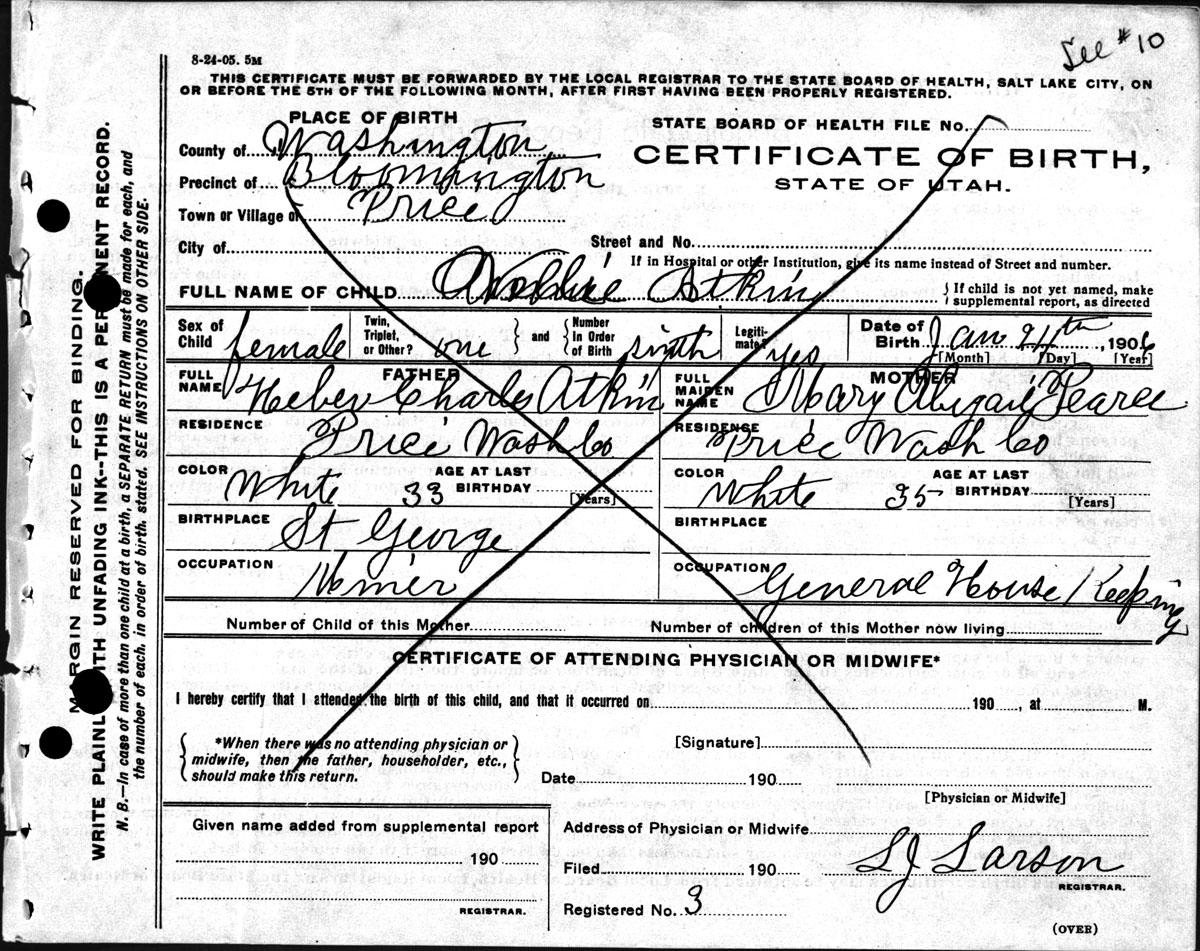 See #10
8-24-05. 5M
THIS CERTIFICATE MUST BE FORWARDED BY THE LOCAL REGISTRAR TO THE STATE BOARD OF HEALTH, SALT LAKE CITY, ON
OR BEFORE THE 5TH OF THE FOLLOWING MONTH, AFTER FIRST HAVING BEEN PROPERLY REGISTERED.
PLACE OF BIRTH
STATE BOARD OF HEALTH FILE No.
County of Washington
CERTIFICATE OF BIRTH,
Precinct of Bloomington
STATE OF UTAH.
Town or Village of Price
City of
Street and No.
If in Hospital or other Institution, give its name instead of Street and number.
FULL NAME OF CHILD Atkin
If child is not yet named, make
supplemental report, as directed
Sex of Child female Twin, Triplet, or Other? one and Number In Order of Birth Legiti- mate? yes Date of Birth Jan 24th, 1906
[Month] [Day] [Year]
FATHER
MOTHER
FULL NAME Heber Charles Atkin
FULL MAIDEN NAME Mary Abigail Pearce
RESIDENCE Price Wash Co
RESIDENCE Price Wash Co
COLOR White AGE AT LAST BIRTHDAY 33 [Years]
COLOR White AGE AT LAST BIRTHDAY 35 [Years]
BIRTHPLACE St George
BIRTHPLACE
OCCUPATION
OCCUPATION General House Keeping
Number of Child of this Mother
Number of children of this Mother now living
CERTIFICATE OF ATTENDING PHYSICIAN OR MIDWIFE*
I hereby certify that I attended the birth of this child, and that it occurred on 190 , at M.
*When there was no attending physician or
midwife, then the father, householder, etc.,
should make this return.
[Signature]
Date 190
[Physician or Midwife]
Given name added from supplemental report
190
REGISTRAR.
Address of Physician or Midwife
Filed 190 LJ Larson
REGISTRAR.
Registered No. 3
(OVER)
MARGIN RESERVED FOR BINDING.
WRITE PLAINLY WITH UNFADING INK--THIS IS A PERMANENT RECORD.
N. B.--In case of more than one child at a birth, a SEPARATE RETURN must be made for each, and
the number of each, in order of birth, stated. SEE INSTRUCTIONS ON OTHER SIDE.